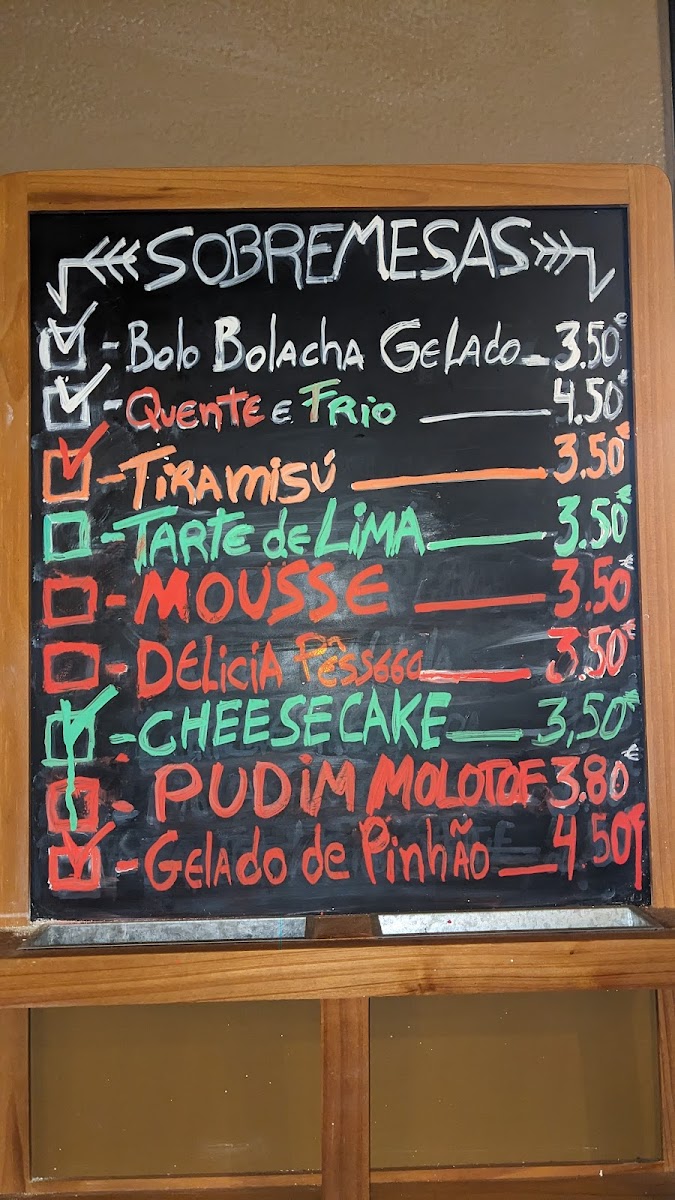 SOBREMESAS
- Bolo Bolacha Gelado - 3.50€
- Quente e Frio - 4.50€
- Tiramisú - 3.50€
- Tarte de Lima - 3.50€
- MOUSSE - 3.50€
- Delicia Pêssego - 3.50€
- CHEESECAKE - 3,50€
- PUDIM MOLOTOF 3.80€
- Gelado de Pinhão - 4.50€